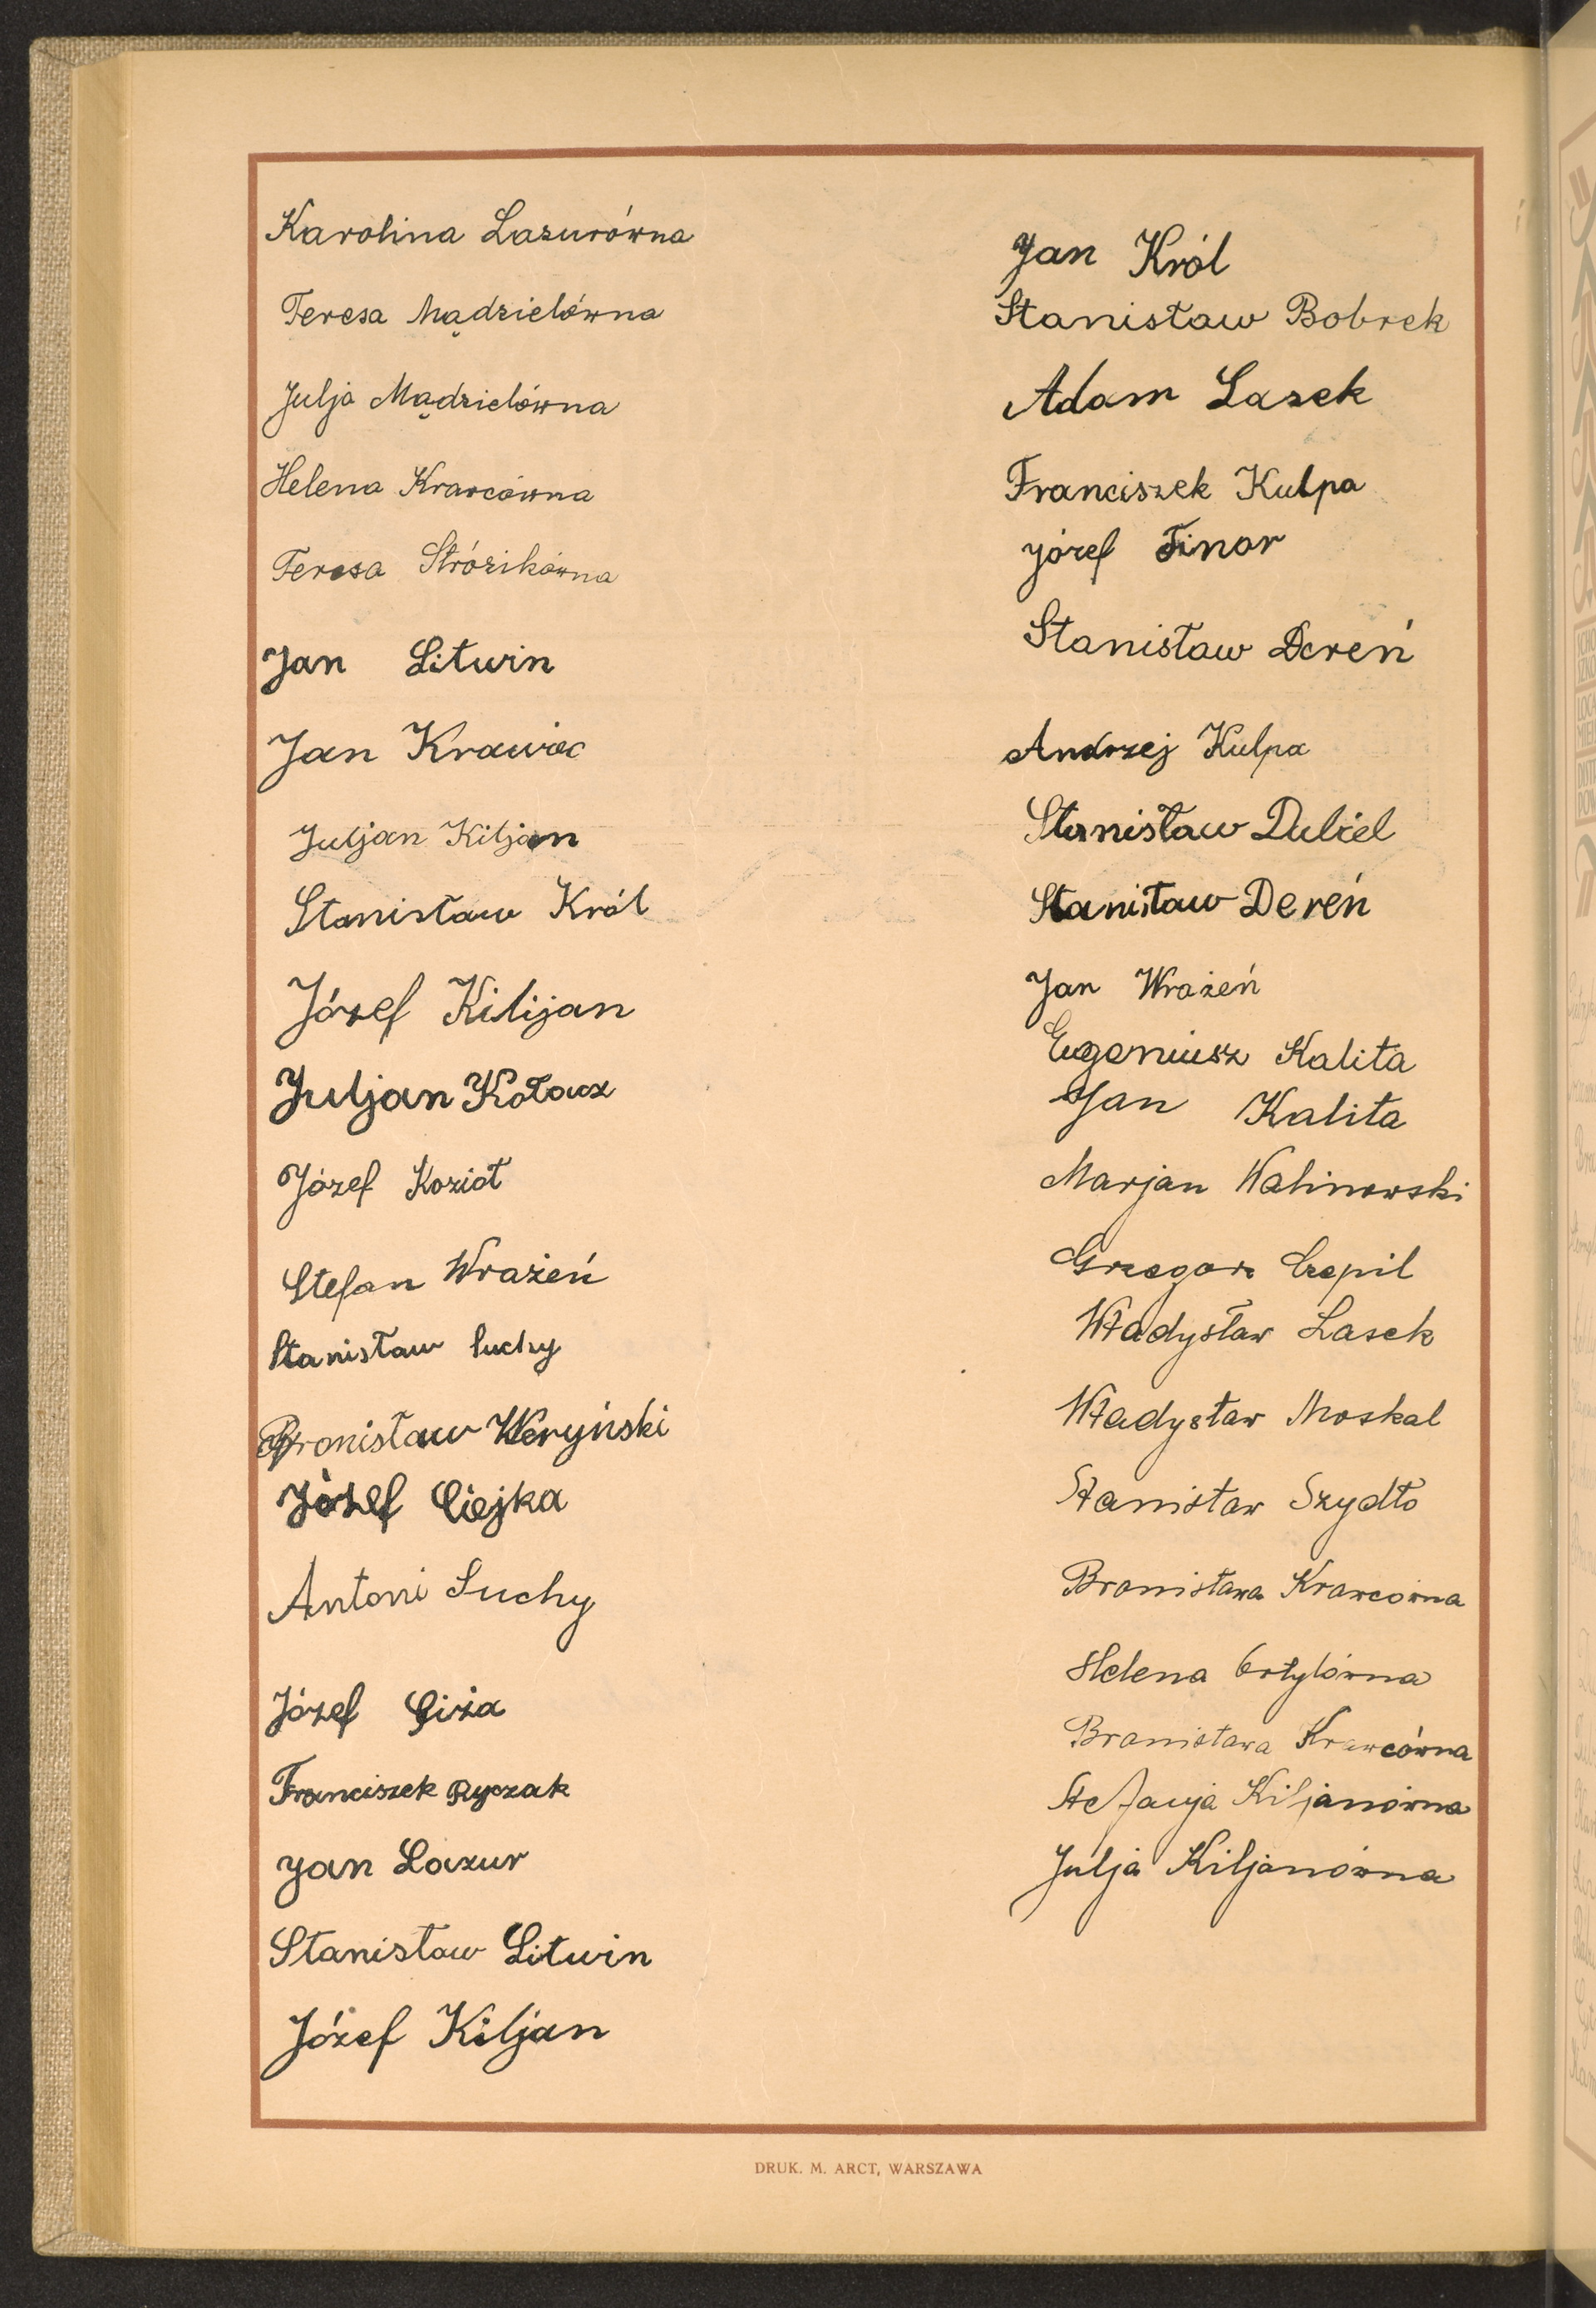 Karolina Lazurówna
Teresa Mądzielówna
Julja Mądzielówna
Helena Krawcówna
Teresa Stróżikówna
Jan Litwin
Jan Krawiec
Juljan Kiljan
Stanisław Król
Józef Kilijan
Juljan Kołacz
Józef Kozioł
Stefan Wrażeń
Stanisław Suchy
Bronisław Weryński
Józef Ciejka
Antoni Suchy
Józef Giża
Franciszek Ryczak
Jan Lazur
Stanisław Litwin
Józef Kiljan
Jan Król
Stanisław Bobrek
Adam Lasek
Franciszek Kulpa
Józef Finor
Stanisław Dereń
Andrzej Kulpa
Stanisław Dubiel
Stanisław Dereń
Jan Wrażeń
Eugeniusz Kalita
Jan Kalita
Marjan Walinowski
Grzegorz Czepil
Władysław Lasek
Władysław Moskal
Stanisław Szydło
Bronisława Krawcówna
Helena Ortylówna
Bronisława Krawcówna
Stefanja Kiljanówna
Julja Kiljanówna
DRUK. M. ARCT, WARSZAWA